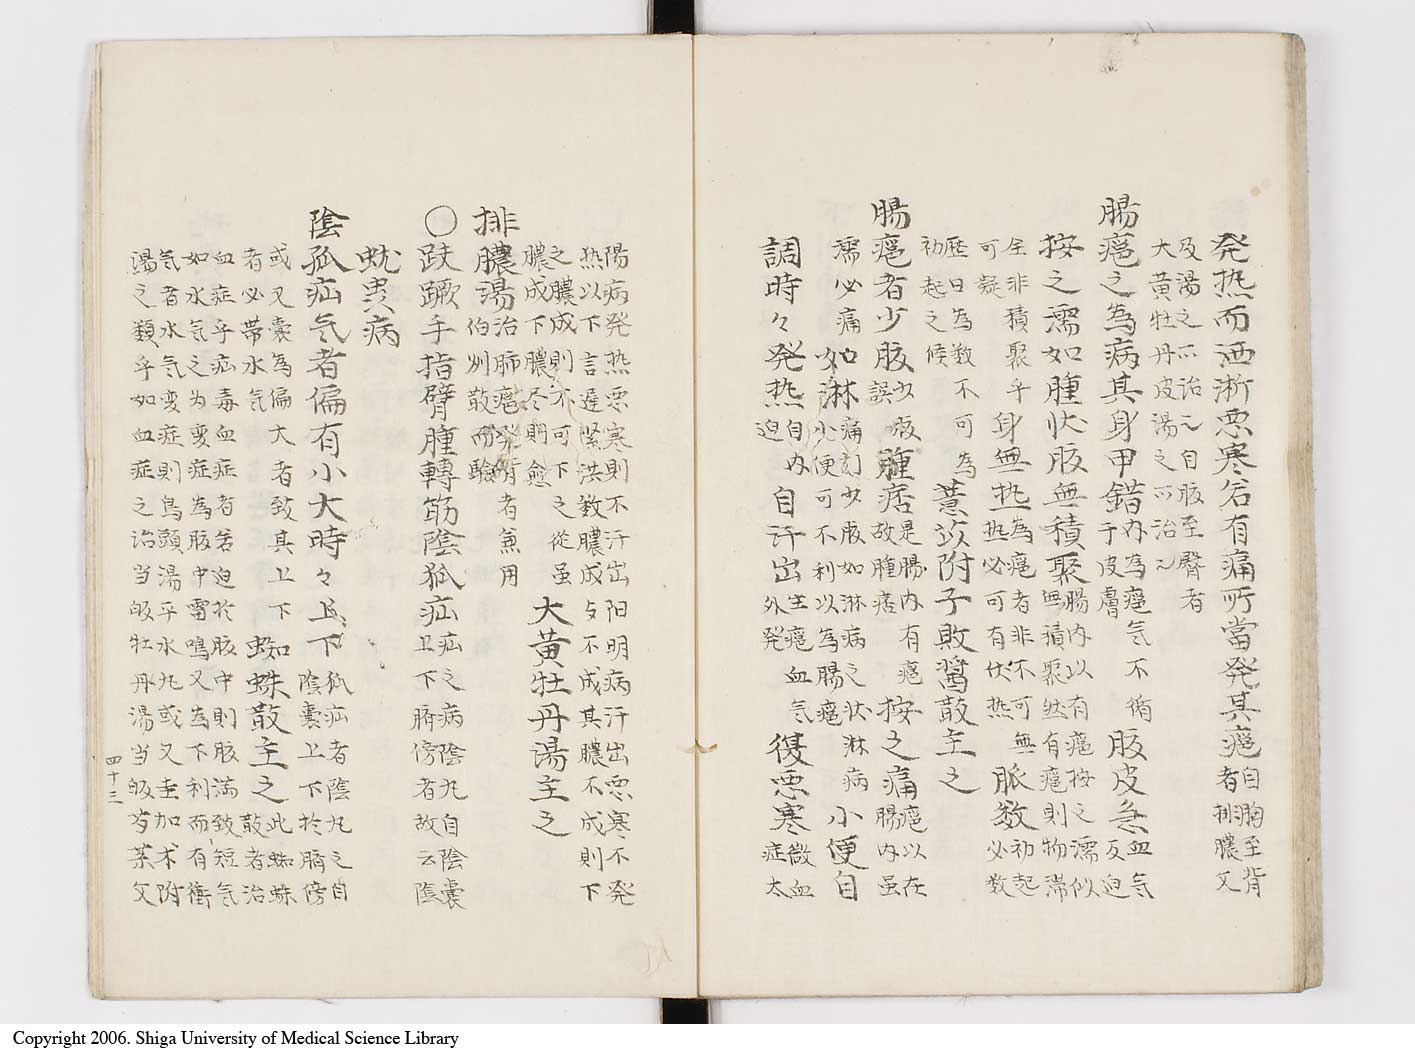 発热而洒淅悪寒若有痛所當発其癰自胸至背
者排膿又
及湯之所治也自股至臀者
大黄牡丹皮湯之所治也
腸癰之為病其身甲錯内為癰气不循
于皮膚
腹皮急血气
反迫
按之濡如腫状腹無積聚腸内以有癰按之濡似
無積聚然有癰則物滞
全非積聚乎
可疑
身無热為癰者非不可無
热必可有伏热
脈数初起
必数
歴日為数不可為
初起之候
薏苡附子敗醤散主之
腸癰者少腹少腹
誤
腫痞是腸内有癰
故腫痞
按之痛癰以在
腸内虽
濡必痛
如淋痛引少腹如淋病之状淋病
小便可不利以為腸癰
小便自
調時々発热自内
迫
自汗出生癰血气
外発
復悪寒微血
症太
陽病発热悪寒則不汗出阳明病汗出悪寒不発
热以下言遅緊洪数膿成与不成其膿不成則下
之膿成則不可下之從虽
膿成下膿尽則愈
大黄牡丹湯主之
排膿湯治肺癰発背者兼用
伯州散而驗
〇趺蹶手指臂腫轉筋陰狐疝疝之病陰丸自陰嚢
上下臍傍者故云陰
蚘虫病
陰狐疝気者偏有小大時々上下狐疝者陰丸之自
陰嚢上下於臍傍
或又嚢為偏大者致其上下
者必帯水気
蜘蛛散主之此蜘蛛
散者治
血症乎疝毒血症者若迫於腹中則腹満致短気
如水気之为変症為腹中雷鳴又為下利而有衝
気者水気変症則烏頭湯乎水丸或又加术附
湯之類乎如血症之治当皈牡丹湯当皈芍薬又
四十三
Copyright 2006. Shiga University of Medical Science Library